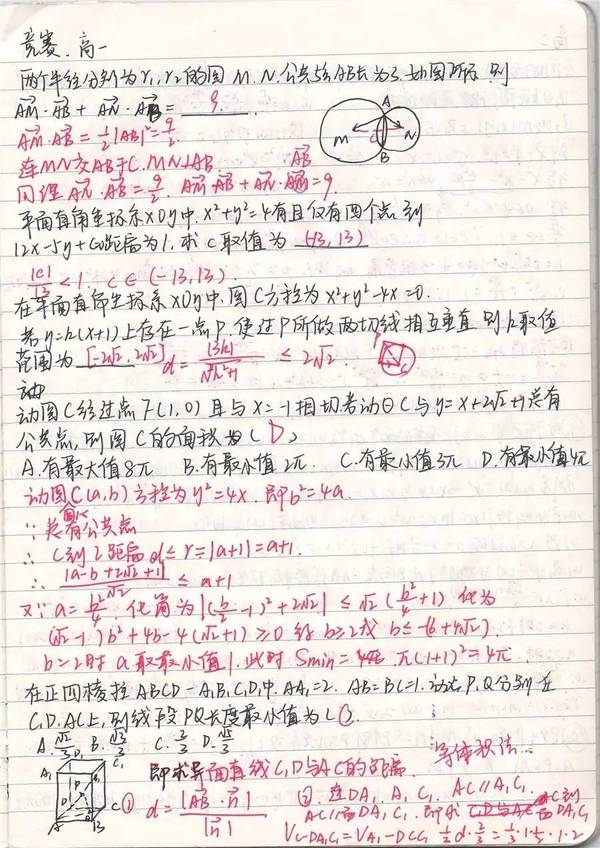 竞赛.高一
两个半径分别为r₁,r₂的圆M.N.公共弦AB长为3.如图所示.则
AM·AB + AN·AB = 9.
AM·AB = 1/2|AB|² = 9/2
A
M
C
N
B
连MN交AB于C.MN⊥AB.
同理AN·AB = 9/2. AM·AB + AN·AB = 9.
平面直角坐标系xOy中.x²+y²=4有且仅有四个点到
12x-5y+c=0距离为1.求c取值为 (-13, 13)
|c|/13 < 1. c∈(-13,13)
在平面直角坐标系xOy中.圆C方程为x²+y²-4x=0.
若y=k(x+1)上存在一点P.使过P所做两切线相互垂直.则k取值
范围为 [-2√2, 2√2] d = |3k|/√k²+1 ≤ 2√2.
动圆C经过点F(1,0)且与x=-1相切.若动⊙C与y=x+2√2+1总有
公共点,则圆C的面积为( D )
A.有最大值8π B.有最小值2π. C.有最小值3π D.有最小值4π
动圆C(a,b)方程为y²=4x.即b²=4a.
∵总有公共点
∴C到l距离d≤r=|a+1|=a+1.
∴ |a-b+2√2+1|/√2 ≤ a+1
又∵a=b²/4. 化简为|(b/2-1)²+2√2| ≤ √2(b²/4+1) 化为
(√2-1)b²+4b-4(√2+1)≥0 解 b≥2或b≤-(6+4√2).
b=2时a取最小值1.此时Smin= π(1+1)²=4π.
在正四棱柱ABCD-A₁B₁C₁D₁中.AA₁=2. AB=BC=1.动点P.Q分别在
C₁D.AC上,则线段PQ长度最小值为( ).
A.√2/3 B.√3/3 C.2/3 D.√5/3
等体积法
即求异面直线C₁D与AC的距离.
① d = |AB·n|/|n|
② 连DA₁, A₁C₁. AC∥A₁C₁.
AC∥面DA₁C₁.即求AC到面DA₁C₁
V C-DA₁C₁ = V A₁-DCC₁ 1/3·d·3/2 = 1/3·1·1/2·1·2